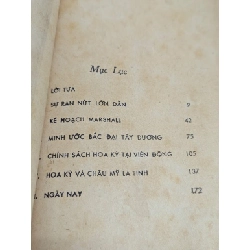 Mục Lục
LỜI TỰA
SỰ RẠN NỨT LỚN DẦN 9
KẾ HOẠCH MARSHALL 42
MINH ƯỚC BẮC ĐẠI TÂY DƯƠNG 75
CHÍNH SÁCH HOA KỲ TẠI VIỄN ĐÔNG 105
HOA KỲ VÀ CHÂU MỸ LA TINH 137
NGÀY NAY 172